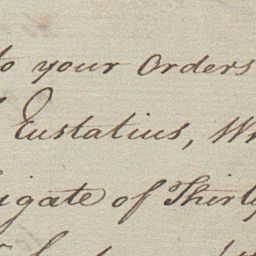 to your Orders
Eustatius, Wh
igate of Thirty